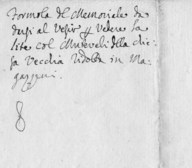 Formola del Memoriale da
darsi al Vesir p vedere la
lite col Mutevali della chie
sa Vecchia ridotta in Ma
gazzini
8